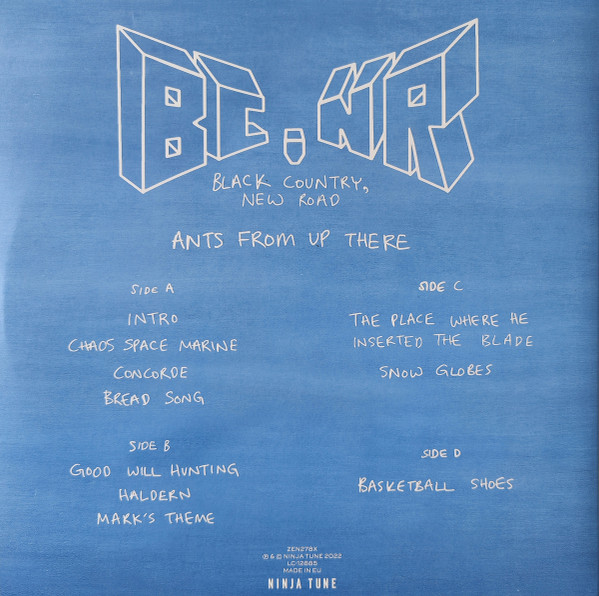 BC,NR
BLACK COUNTRY,
NEW ROAD
ANTS FROM UP THERE
SIDE A
INTRO
CHAOS SPACE MARINE
CONCORDE
BREAD SONG
SIDE B
GOOD WILL HUNTING
HALDERN
MARK'S THEME
SIDE C
THE PLACE WHERE HE
INSERTED THE BLADE
SNOW GLOBES
SIDE D
BASKETBALL SHOES
ZEN278X
℗ & © NINJA TUNE 2022
LC-12885
MADE IN EU
NINJA TUNE